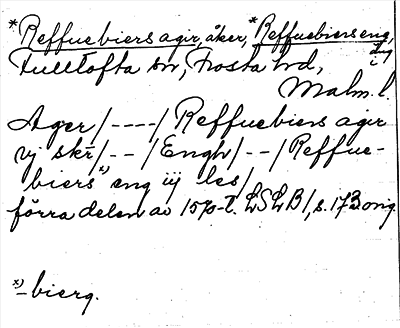 *Reffuebiers agir, åker, *Reffuebiers eng,
äng i
Fulltofta sn, Frosta hd,
Malm. l.
Ager /----/ Reffuebiers agir
vj skr /--/ Engh /--/ Reffue-
biers x) eng iij les /
förra delen av 1570-t. LSLB 1, s. 173 orig.
x) -bierg.